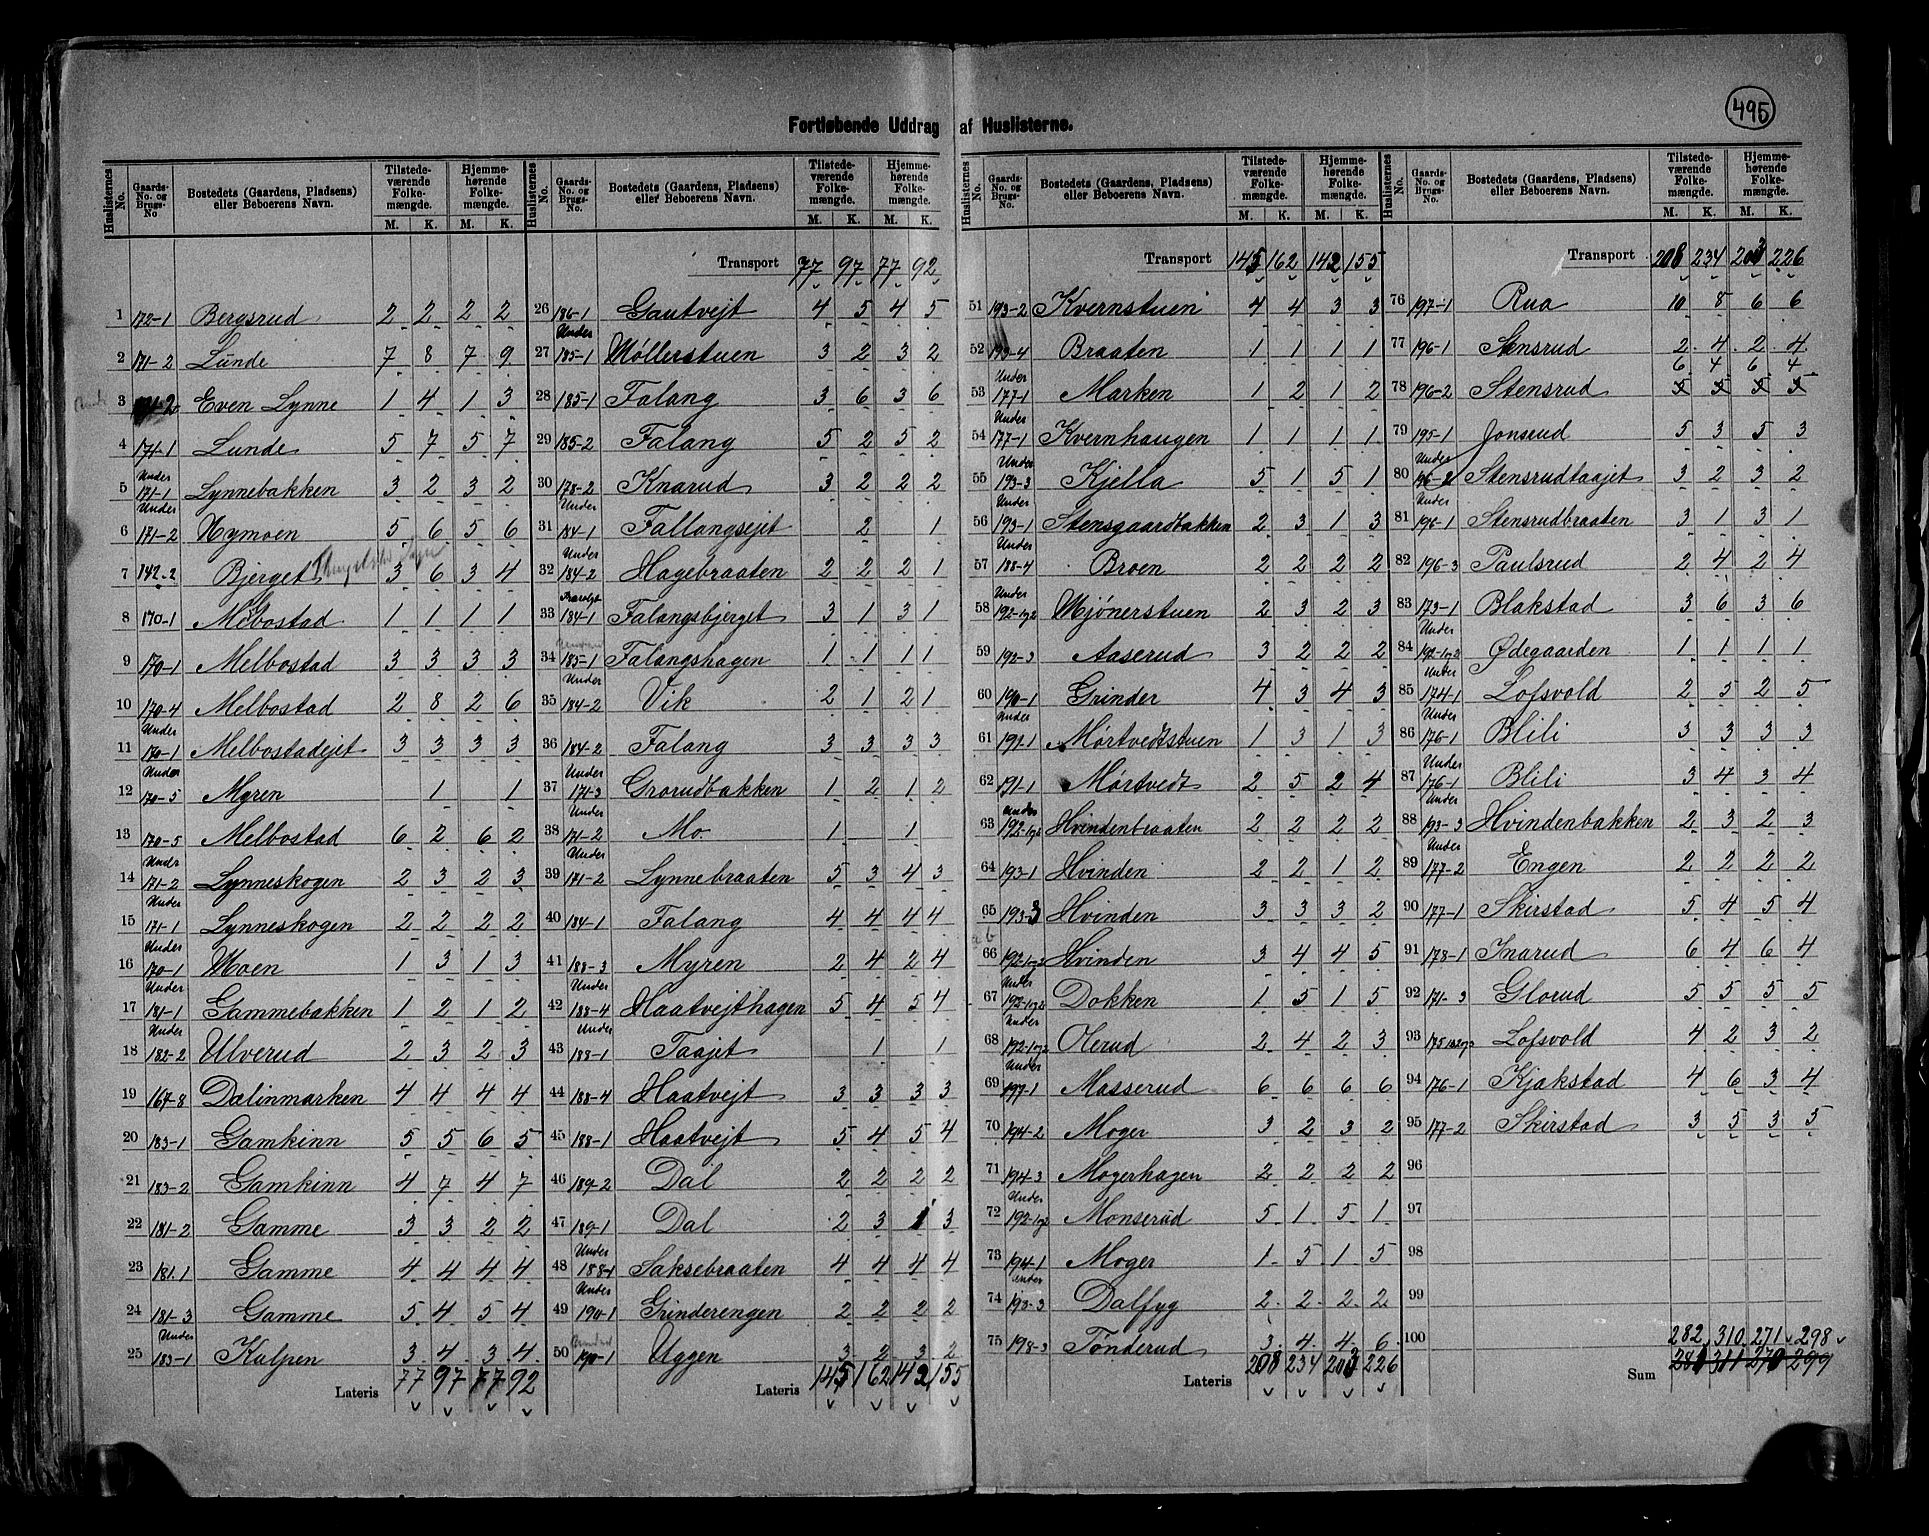 495
Fortløbende Uddrag af Huslisterne.
Huslisternes No. | Gaards-No. og Brugs-No | Bostedets (Gaardens, Pladsens) eller Beboerens Navn. | Tilstedeværende Folkemængde. M. K. | Hjemmehørende Folkemængde. M. K.
1 172-1 Bergsrud 2 2 2 2
2 171-2 Lunde 7 8 7 9
3 171-2 Even Lynne 1 4 1 3
4 171-1 Lunde 5 7 5 7
5 Under 171-1 Lynnebakken 3 2 3 2
6 Under 171-2 Nymoen 5 6 5 6
7 142-2 Bjerget 3 6 3 4
8 170-1 Melbostad 1 1 1 1
9 170-1 Melbostad 3 3 3 3
10 170-4 Melbostad 2 8 2 6
11 Under 170-1 Melbostadejet 3 3 3 3
12 Under 170-5 Myren 1 1
13 170-5 Melbostad 6 2 6 2
14 Under 171-2 Lynneskogen 2 3 2 3
15 Under 171-1 Lynneskogen 2 2 2 2
16 Under 170-1 Moen 1 3 1 3
17 Under 181-1 Gammebakken 1 2 1 2
18 Under 182-2 Ulverud 2 3 2 3
19 167-8 Dælinmarken 4 4 4 4
20 183-1 Gamkinn 5 5 6 5
21 183-2 Gamkinn 4 7 4 7
22 181-2 Gamme 3 3 2 2
23 181.1 Gamme 4 4 4 4
24 181-3 Gamme 5 4 5 4
25 Under 183-1 Kalpen 3 4 3 4
Lateris 77 97 77 92
Huslisternes No. | Gaards-No. og Brugs-No. | Bostedets (Gaardens, Pladsens) eller Beboerens Navn. | Tilstedeværende Folkemængde. M. K. | Hjemmehørende Folkemængde. M. K.
Transport 77 97 77 92
26 186-1 Gautvejt 4 5 4 5
27 Under 185-1 Møllerstuen 3 2 3 2
28 185-1 Falang 3 6 3 6
29 185-2 Falang 5 2 5 2
30 178-2 Knarud 3 2 2 2
31 184-1 Fallangsejet 2 1
32 Under 184-2 Hagebraaten 2 2 2 1
33 184-1 Falangsbjerget 3 1 3 1
34 185-1 Falangshagen 1 1 1 1
35 Under 184-2 Vik 2 1 2 1
36 184-2 Falang 3 3 3 3
37 Under 171-3 Grorudbakken 1 2 1 2
38 Under 171-2 Mo. 1 1
39 Under 171-2 Lynnebraaten 5 3 4 3
40 184-1 Falang 4 4 4 4
41 188-3 Myren 2 4 2 4
42 Under 188-4 Haatvejthagen 5 4 5 4
43 Under 188-1 Taajet 1 1
44 188-4 Haatvejt 3 3 3 3
45 188-1 Haatvejt 5 4 5 4
46 189-2 Dal 2 2 2 2
47 189-1 Dal 2 3 1 3
48 Under 188-1 Saksebraaten 4 4 4 4
49 Under 190-1 Grinderengen 2 2 2 2
50 190-1 Uggen 3 2 3 2
Lateris 145 162 142 155
Huslisternes No. | Gaards-No. og Brugs-No. | Bostedets (Gaardens, Pladsens) eller Beboerens Navn. | Tilstedeværende Folkemængde. M. K. | Hjemmehørende Folkemængde. M. K.
Transport 145 162 142 155
51 193-2 Kvernstuen 4 4 3 3
52 193-4 Braaten 1 1 1 1
53 Under 177-1 Marken 1 2 1 2
54 Under 177-1 Kvernhaugen 1 1 1 1
55 Under 193-3 Kjella 5 1 5 1
56 Under 193-1 Stensgaardbakken 2 3 1 3
57 Under 188-4 Broen 2 2 2 2
58 Under 192-1og2 Mjónerstuen 2 3 2 3
59 192-3 Aaserud 3 2 2 2
60 190-1 Grinder 4 3 4 3
61 Under 191-1 Mórtvedtstuen 1 3 1 3
62 191-1 Mórtvedt 2 5 2 4
63 Under 192-1og2 Hvindenbraaten 2 2 2 2
64 193-1 Hvinden 2 2 1 2
65 193-3 Hvinden 3 3 3 2
66 192-1og2 Hvinden 3 4 4 5
67 Under 192-1og2 Dokken 1 5 1 5
68 Under 192-1og2 Olerud 2 4 2 3
69 Under 197-1 Masserud 6 6 6 6
70 194-2 Moger 3 2 3 2
71 194-3 Mogerhagen 2 2 2 2
72 Under 192-1og2 Monserud 5 1 5 1
73 194-1 Moger 1 5 1 5
74 Under 193-3 Dalfyg 2 2 2 2
75 198-3 Tónderud 3 4 4 6
Lateris 208 234 203 226
Huslisternes No. | Gaards-No. og Brugs-No. | Bostedets (Gaardens, Pladsens) eller Beboerens Navn. | Tilstedeværende Folkemængde. M. K. | Hjemmehørende Folkemængde. M. K.
Transport 208 234 203 226
76 197-1 Rua 10 8 6 6
77 196-1 Stensrud 2 4 2 4
6 4 6 4
78 196-2 Stensrud 5 5 5 5
79 195-1 Jonsrud 5 3 5 3
80 Under 196-2 Stensrudtaajet 3 2 3 2
81 Under 196-1 Stensrudbraaten 3 1 3 1
82 196-3 Paulsrud 2 4 2 4
83 173-1 Blakstad 3 6 3 6
84 Under 192-1og2 Ødegaarden 1 1 1 1
85 Under 174-1 Lofsvold 2 5 2 5
86 Under 176-1 Blili 3 3 3 3
87 Under 176-1 Blili 3 4 3 4
88 Under 193-3 Hvindenbakken 2 3 2 3
89 Under 177-2 Engen 2 2 2 2
90 177-1 Skirstad 5 4 5 4
91 178-1 Knarud 6 4 6 4
92 171-3 Glorud 5 5 5 5
93 Lofsvold 4 2 3 2
94 176-1 Kjakstad 4 6 3 4
95 177-2 Skirstad 3 5 3 5
96
97
98
99
100
282 310 271 298
Sum 281 311 270 299